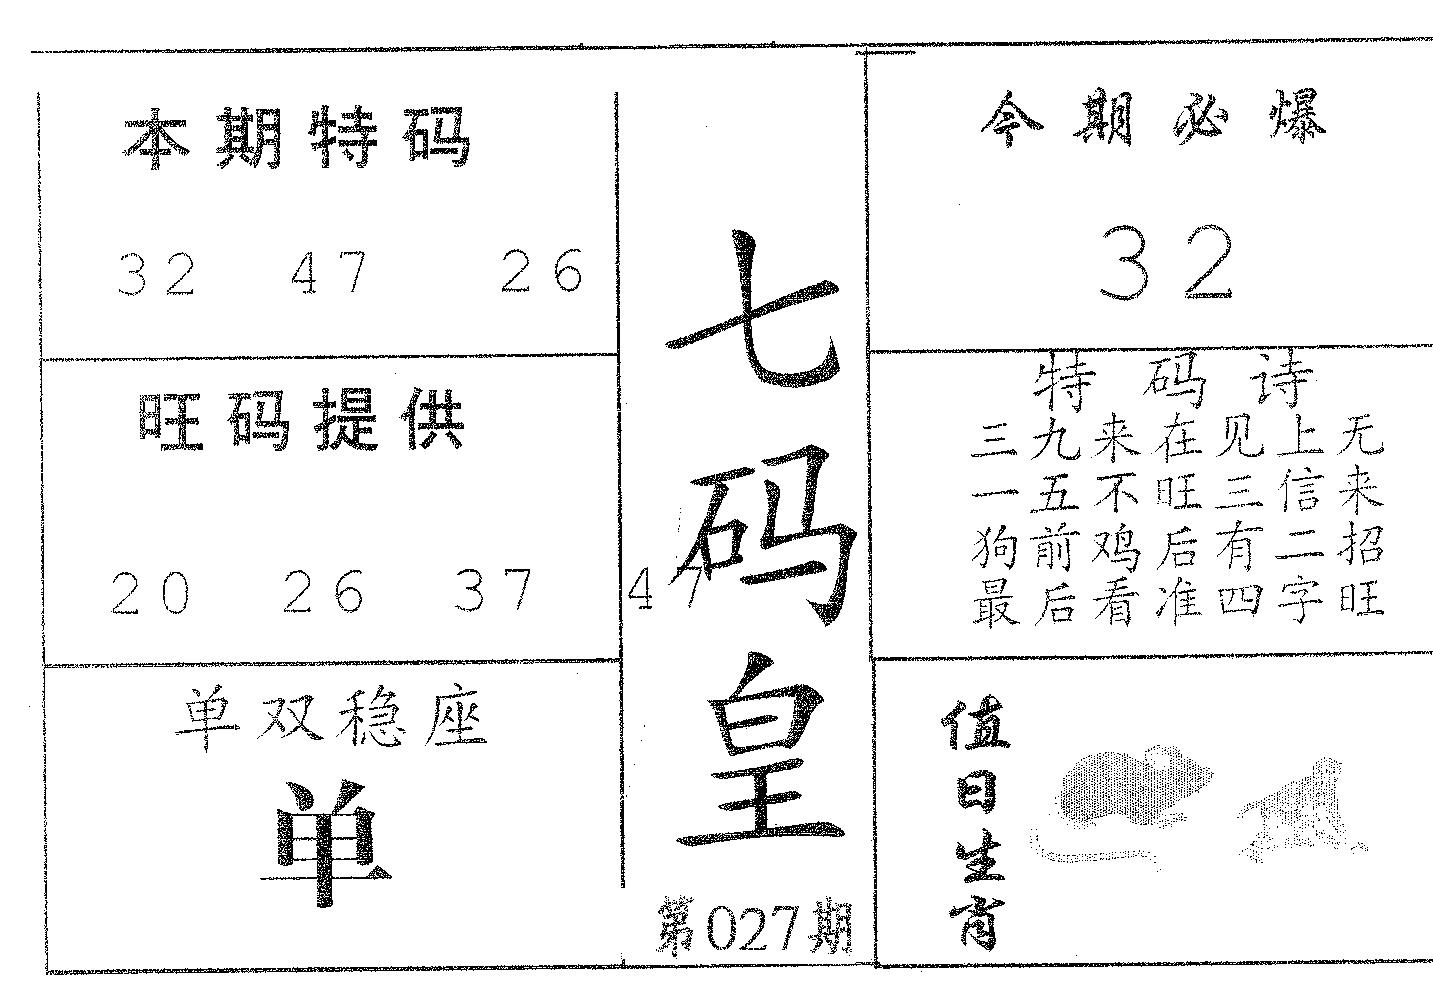 本期特码
32 47 26
旺码提供
20 26 37 47
单双稳座
单
七码皇
第027期
今期必爆
32
特码诗
三九来在见上无
一五不旺三信来
狗前鸡后有二招
最后看准四字旺
值日生肖